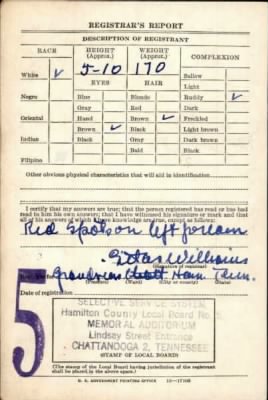 REGISTRAR'S REPORT
DESCRIPTION OF REGISTRANT
RACE HEIGHT (Approx.) WEIGHT (Approx.) COMPLEXION
5-10 170
White ✓ EYES HAIR Sallow
Light
Negro Blue Blonde Ruddy ✓
Gray Red Dark
Oriental Hazel Brown ✓ Freckled
Brown ✓ Black Light brown
Indian Black Gray Dark brown
Bald Black
Filipino
Other obvious physical characteristics that will aid in identification
I certify that my answers are true; that the person registered has read or has had
read to him his own answers; that I have witnessed his signature or mark and that
all of his answers of which I have knowledge are true, except as follows:
Red Spots on left forearm
Williams
(Signature of registrar)
Registrar for Ham Tenn.
(Precinct) (Ward) (City or county) (State)
Date of registration
5
SELECTIVE SERVICE SYSTEM
Hamilton County Local Board No. 5
MEMORIAL AUDITORIUM
Lindsay Street Entrance
CHATTANOOGA 2, TENNESSEE
(STAMP OF LOCAL BOARD)
(The stamp of the Local Board having jurisdiction of the registrant
shall be placed in the above space.)
U. S. GOVERNMENT PRINTING OFFICE